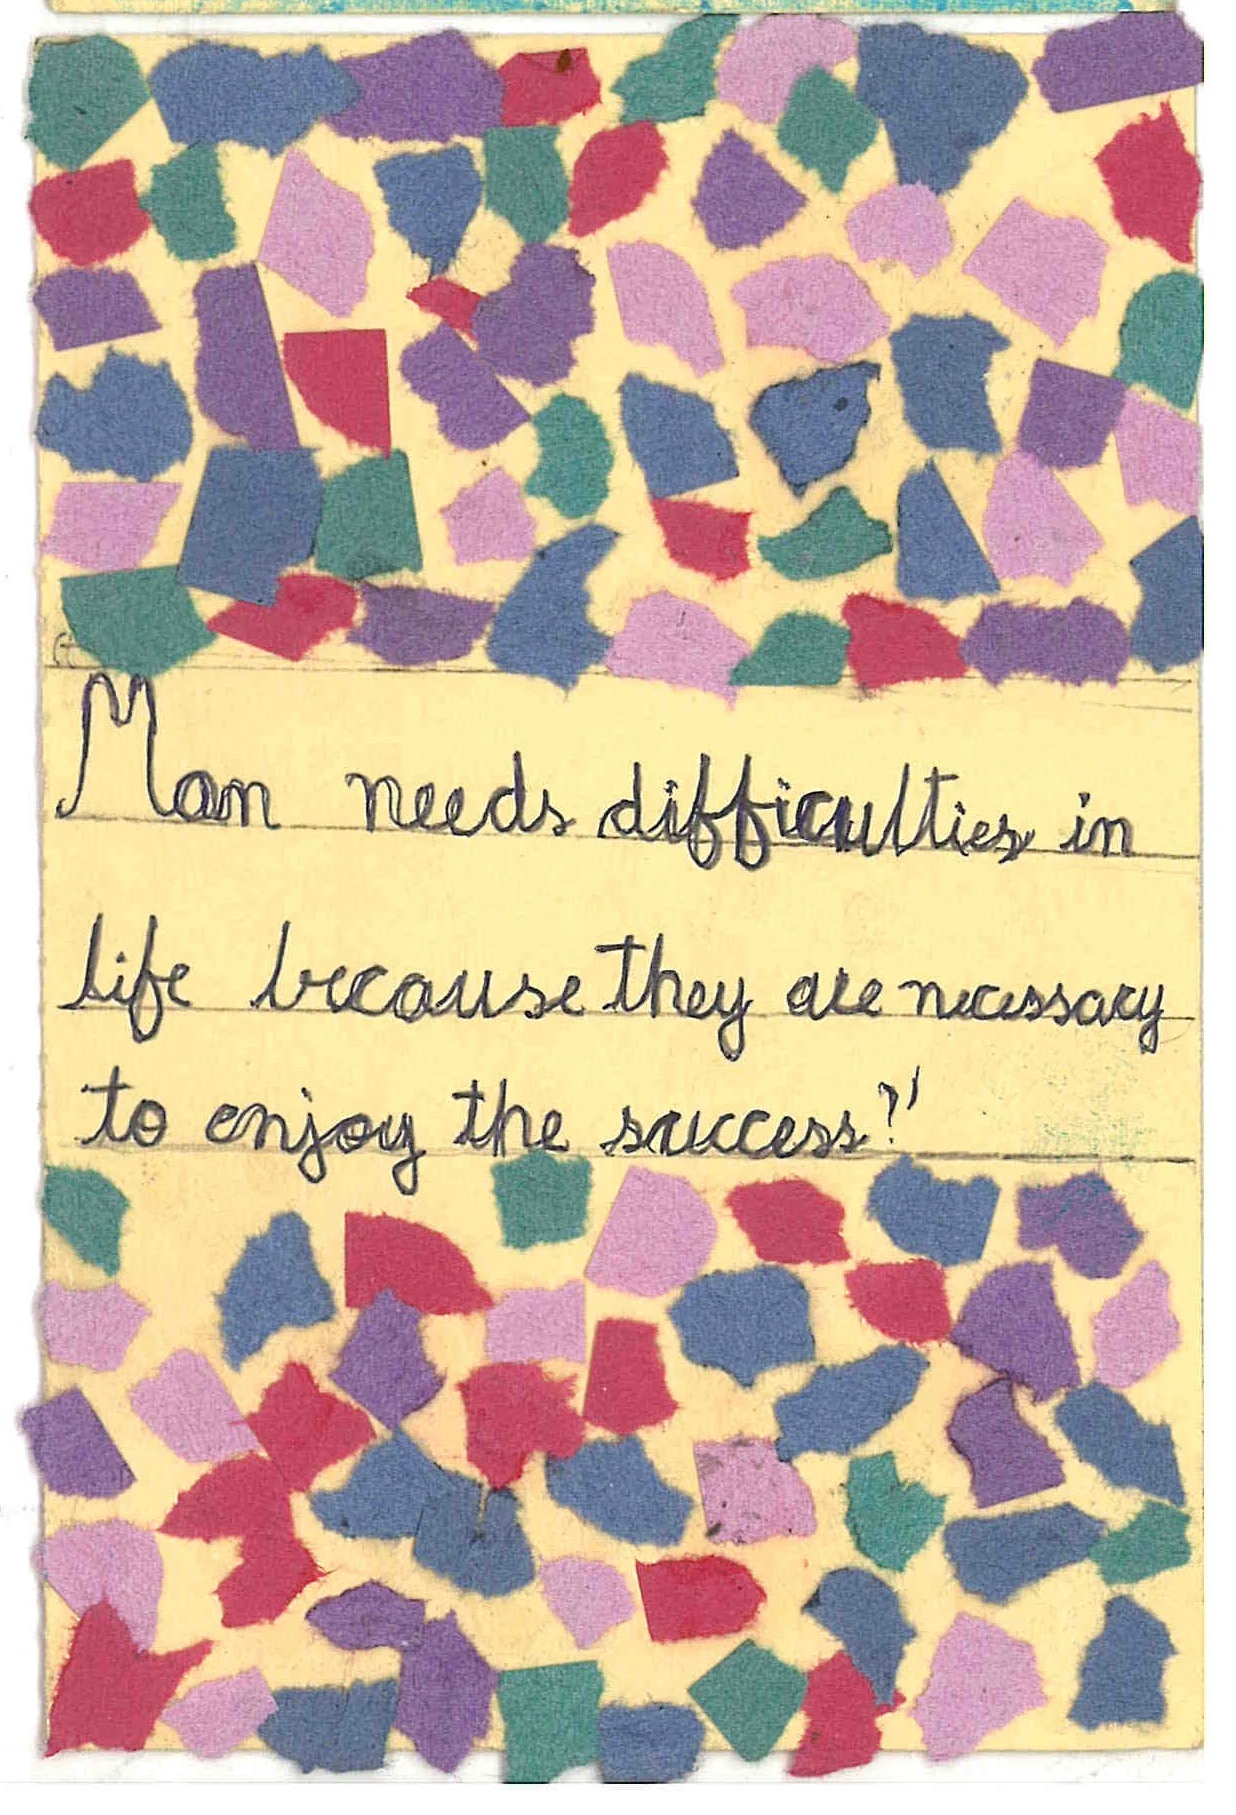 Man needs difficulties in
life because they are necessary
to enjoy the success?'